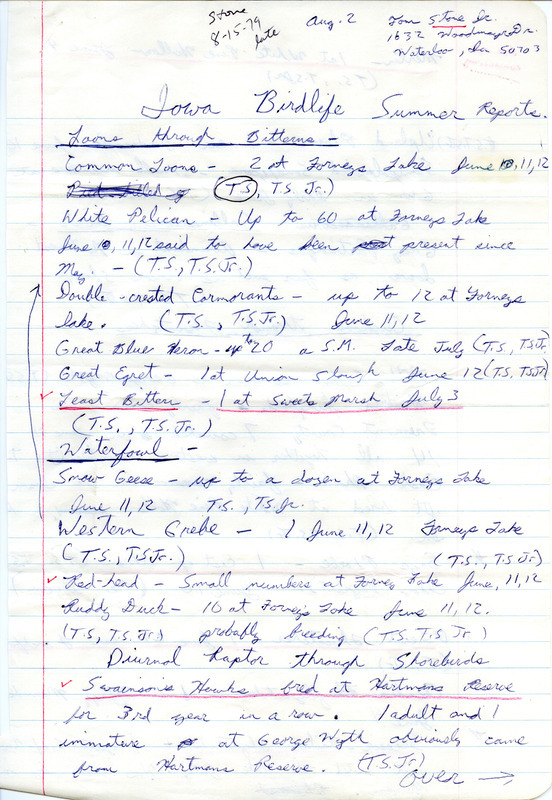 Stone
8-15-79
late
Aug. 2
Tom Stone Jr.
1632 Woodmayr Dr.
Waterloo, Ia 50703
Iowa Birdlife Summer Reports.
Loons through Bitterns -
Common Loons - 2 at Forneys Lake June 10, 11, 12
(T.S, T.S. Jr.)
White Pelican - Up to 60 at Forneys Lake
June 10, 11, 12 said to have been present since
May. - (T.S, T.S. Jr.)
Double-crested Cormorants - up to 12 at Forneys
Lake. (T.S., T.S. Jr.) June 11, 12
Great Blue Heron - up to 20 a S.M. Late July (T.S., T.S Jr)
Great Egret - 1 at Union Slough June 12 (T.S, TSJr)
Least Bittern - 1 at Sweets Marsh July 3
(T.S., T.S. Jr.)
Waterfowl -
Snow Geese - up to a dozen at Forneys Lake
June 11, 12 T.S., T.S. Jr.
Western Grebe - 1 June 11, 12 Forneys Lake
(T.S., T.S Jr.) (T.S., T.S Jr)
Red-head - Small numbers at Forney Lake June, 11, 12
Ruddy Duck - 10 at Forneys Lake June 11, 12.
(T.S, T.S. Jr) probably breeding (T.S. T.S Jr)
Diurnal Raptor through Shorebirds
Swainson's Hawks bred at Hartmans Reserve
for 3rd year in a row. 1 adult and 1
immature at George Wyth obviously came
from Hartmans Reserve. (T.S. Jr)
over →